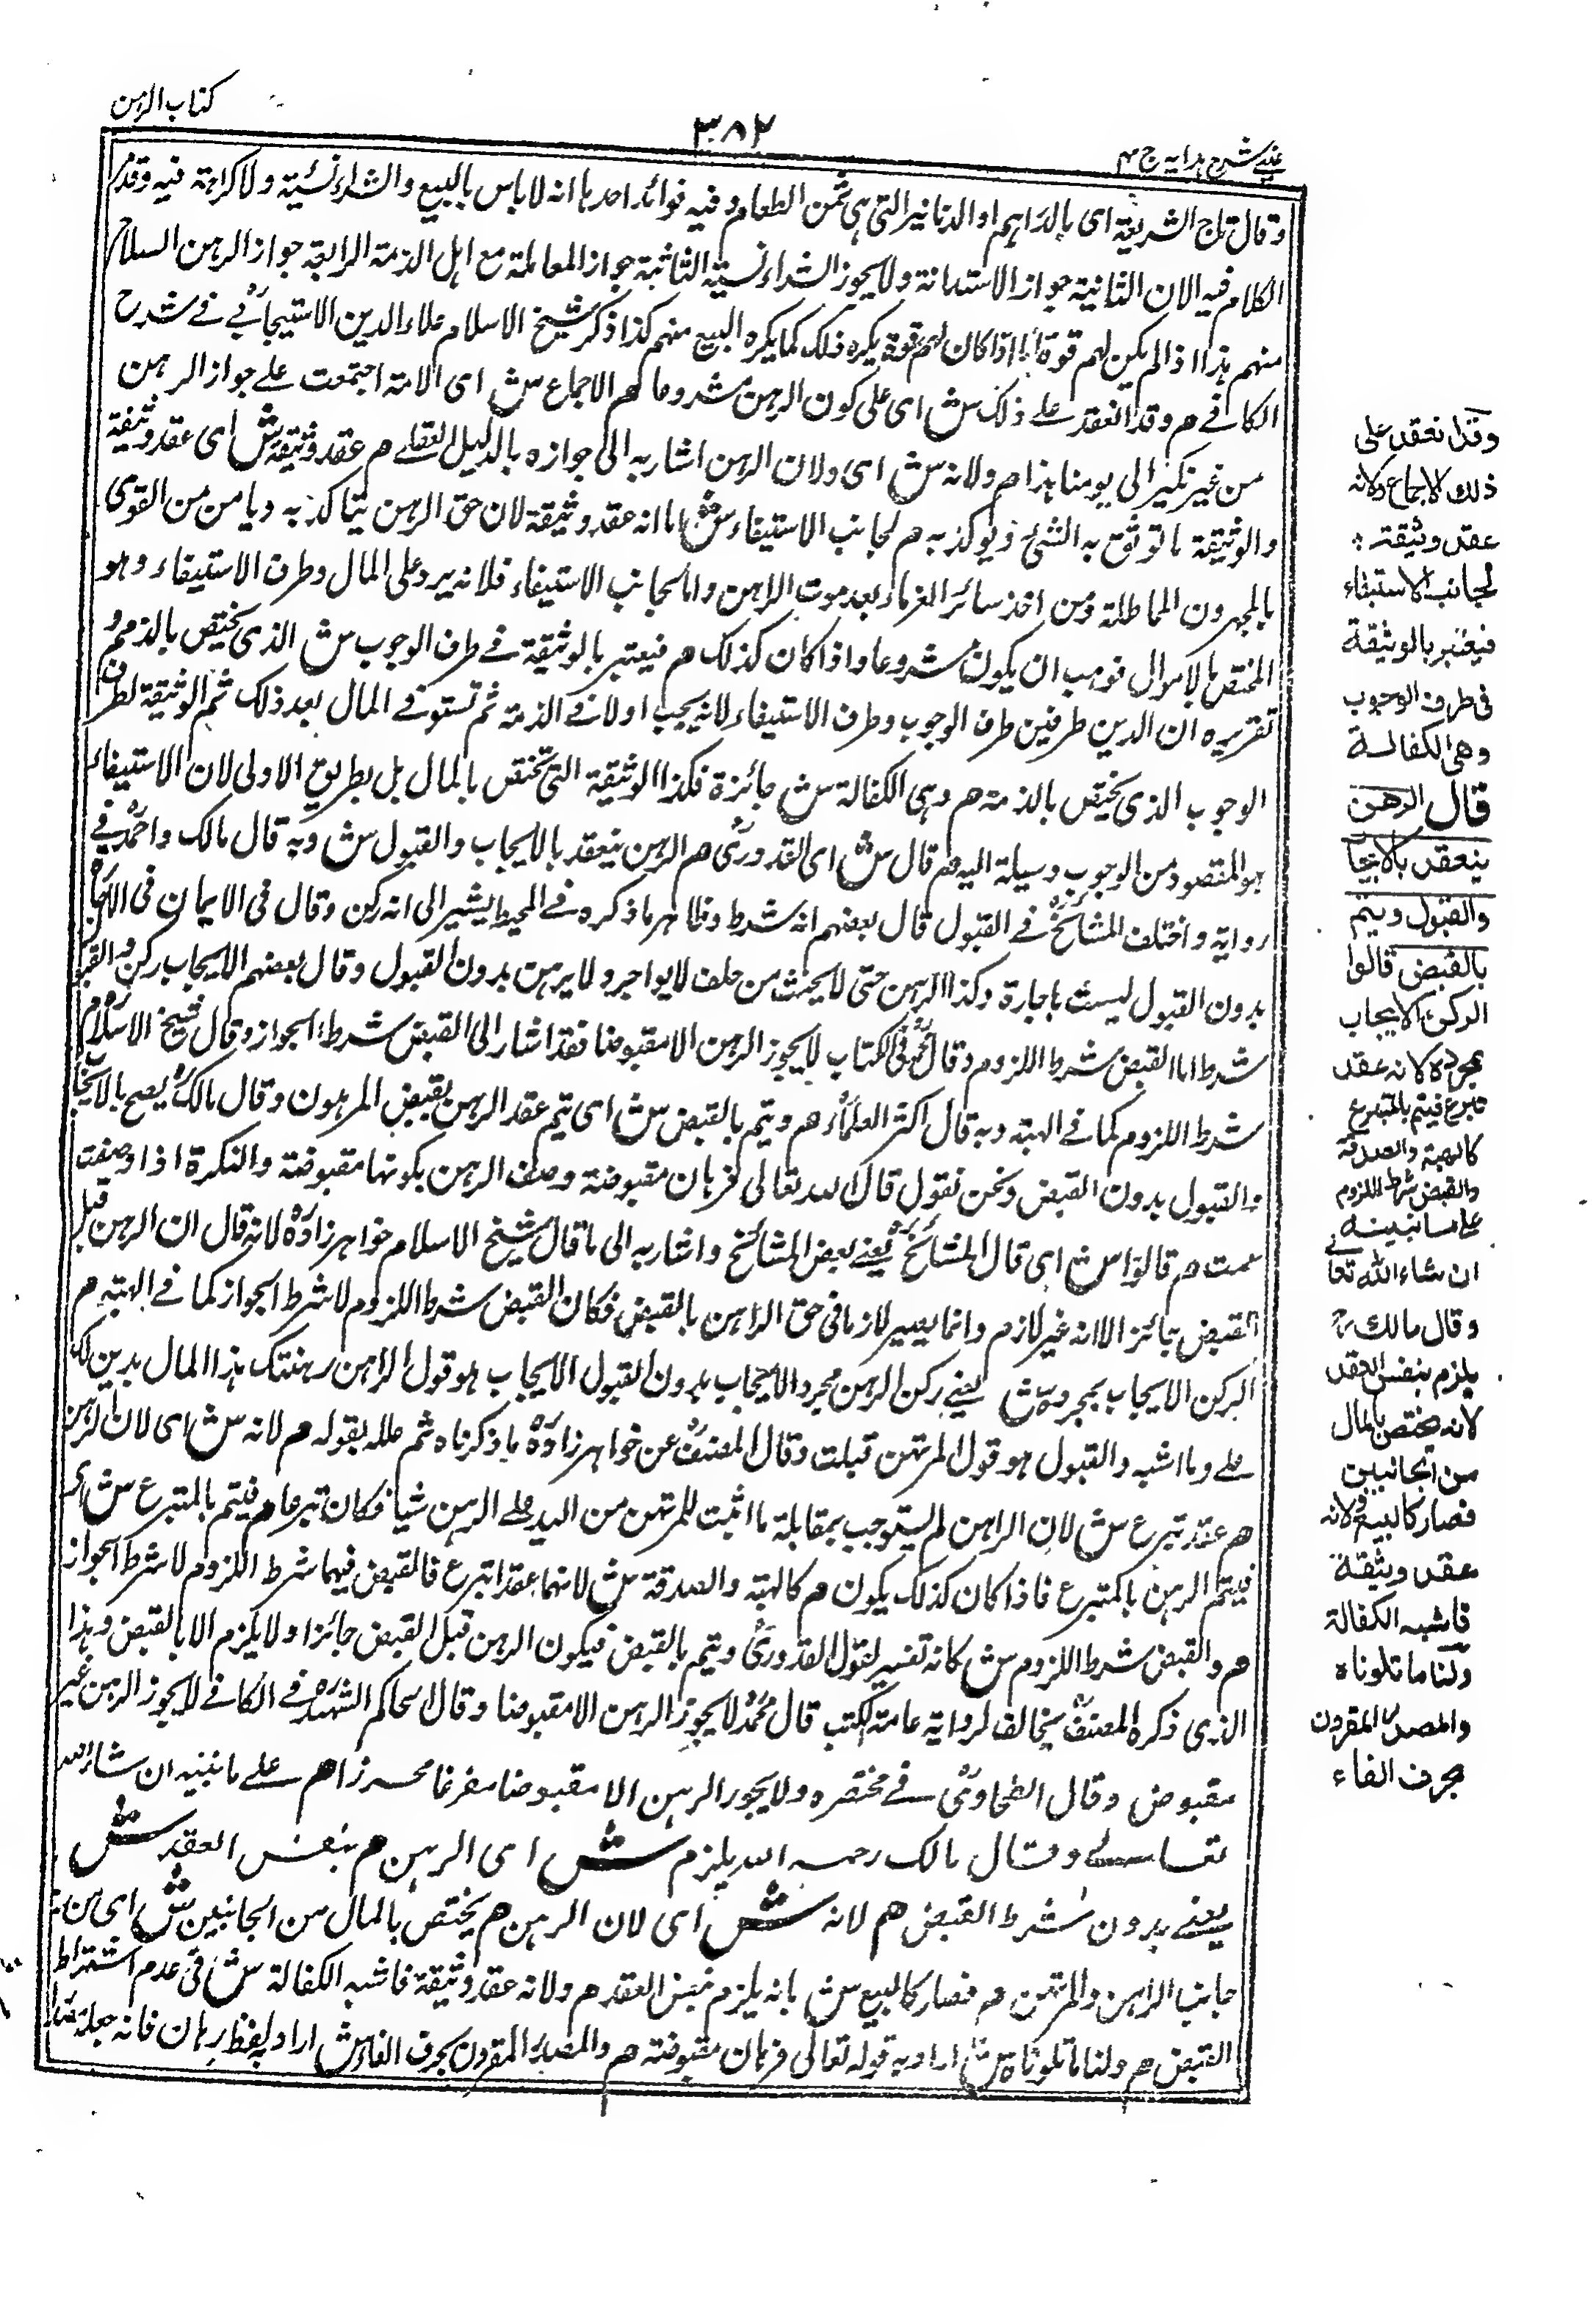 كتاب الرهن
٣٨٢
عيني شرح هدايه ج ٤
وقال تاج الشريعة اى بالدراهم او الدنانير التى هى ثمن الطعام وفيه فوائد احدها انه لا باس بالبيع والشراء نسئية ولا كراهة فيه وقد مر
الكلام فيه الان الثانية جواز الاستدانة ولا يجوز الشراء نسية الثالثة جواز المعاملة مع اهل الذمة الرابعة جواز الرهن السلاح
منهم هذا اذا لم يكن لهم قوة اما اذا كان لهم قوة يكره ذلك كما يكره البيع منهم كذا ذكر شيخ الاسلام علاء الدين الاسبيجابى فى شرح
الكافى م وقد انعقد على ذلك ش اى على كون الرهن مشروعا م الاجماع ش اى الامة اجتمعت على جواز الرهن
من غير نكير الى يومنا هذا م ولانه ش اى ولان الرهن اشار به الى جوازه بالدليل العقلى م عقد وثيقة ش اى عقد وثيقة
والوثيقة ما توثق به الشئ ويوكد به م لجانب الاستيفاء ش اما انه عقد وثيقة لان حق الرهن يتاكد به ويا من من القوى
بالجهود المماطلة ومن اخذ سائر الغرماء بعد موت الراهن واما لجانب الاستيفاء فلانه يرد على المال وطرف الاستيفاء وهو
المختص بالاموال فوجب ان يكون مشروعا واذا كان كذلك م فيعتبر بالوثيقة فى طرف الوجوب ش الذى يختص بالذمة و
تقريره ان الدين طرفين طرف الوجوب وطرف الاستيفاء لانه يجب اولا فى الذمة ثم تستوفى المال بعد ذلك ثم الوثيقة لطرف
الوجوب الذى يختص بالذمة م وهى الكفالة ش جائزة فكذا الوثيقة التى تختص بالمال بل بطريق الاولى لان الاستيفاء
هو المقصود من الوجوب وسيلة اليه م قال ش اى القدورى م الرهن ينعقد بالايجاب والقبول ش وبه قال مالك واحمد فى
رواية واختلف المشائخ فى القبول قال بعضهم انه شرط وظاهر ما ذكره فى المحيط يشير الى انه ركن وقال فى الايمان فى الاجارة
بدون القبول ليست باجارة وكذا الرهن حتى لا يحنث من حلف لا يواجر ولا يرهن بدون القبول وقال بعضهم الايجاب ركن والقبول
شرط اما القبض شرط اللزوم وقال محمد فى الكتاب لا يجوز الرهن الا مقبوضا فقد اشار الى القبض شرط الجواز وقال شيخ الاسلام
شرط اللزوم كما فى الهبة وبه قال اكثر العلماء م ويتم بالقبض ش اى يتم عقد الرهن بقبض المرهون وقال مالك يصح بالايجاب
والقبول بدون القبض ونحن نقول قال الله تعالى فرهان مقبوضة وصف الرهن بكونها مقبوضة والنكرة اذا وصفت
عمت م قالوا ش اى قال المشائخ يعنى بعض المشائخ واشار به الى ما قال شيخ الاسلام خواهر زاده لانه قال ان الرهن قبل
القبض جائز الا انه غير لازم وانما يصير لازما فى حق الراهن بالقبض فكان القبض شرط اللزوم لا شرط الجواز كما فى الهبة م
الركن الايجاب بمجرده ش يعنى ركن الرهن مجرد الايجاب بدون القبول الايجاب هو قول الراهن رهنتك هذا المال بدين لك
على وما اشبه والقبول هو قول المرتهن قبلت وقال المصنف عن خواهر زاده ما ذكرناه ثم علله بقوله م لانه ش اى لان الرهن
م عقد تبرع ش لان الراهن لم يستوجب بمقابلة ما اثبت للمرتهن من اليد على الرهن شيا فكان تبرعا م فيتم بالمتبرع ش اى
فيتم الرهن بالمتبرع فاذا كان كذلك يكون م كالهبة والصدقة ش لانهما عقدا تبرع فالقبض فيهما شرط اللزوم لا شرط الجواز
م والقبض شرط اللزوم ش كانه تفسير لقول القدورى ويتم بالقبض فيكون الرهن قبل القبض جائزا ولا يلزم الا بالقبض وهذا
الذى ذكره المصنف يخالف لرواية عامة الكتب قال محمد لا يجوز الرهن الا مقبوضا وقال الحاكم الشهيد فى الكافى لا يجوز الرهن غير
مقبوض وقال الطحاوى فى مختصره ولا يجوز الرهن الا مقبوضا مفرغا محرزا م على ما نبينه ان شاء الله
تعالى وقال مالك رحمه الله يلزم ش اى الرهن م بنفس العقد ش
يعنى بدون شرط القبض م لانه ش اى لان الرهن م يختص بالمال من الجانبين ش اى من
جانب الراهن والمرتهن م فصار كالبيع ش بانه يلزم بنفس العقد م ولانه عقد وثيقة فاشبه الكفالة ش فى عدم اشتراط
القبض م ولنا ما تلوناه ش اراد به قوله تعالى فرهان مقبوضة م والمصدر المقرون بحرف الفاء ش اراد به لفظ رهان فانه جعله
وقد انعقد على
ذلك الاجماع ولانه
عقد وثيقة
لجانب الاستيفاء
فيعتبر بالوثيقة
فى طرف الوجوب
وهى الكفالة
قال الرهن
ينعقد بالايجاب
والقبول ويتم
بالقبض قالوا
الركن الايجاب
بمجرده لانه عقد
تبرع فيتم بالمتبرع
كالهبة والصدقة
والقبض شرط اللزوم
على ما نبينه
ان شاء الله تعالى
وقال مالك رح
يلزم بنفس العقد
لانه مختص بالمال
من الجانبين
فصار كالبيع ولانه
عقد وثيقة
فاشبه الكفالة
ولنا ما تلوناه
والمصدر المقرون
بحرف الفاء